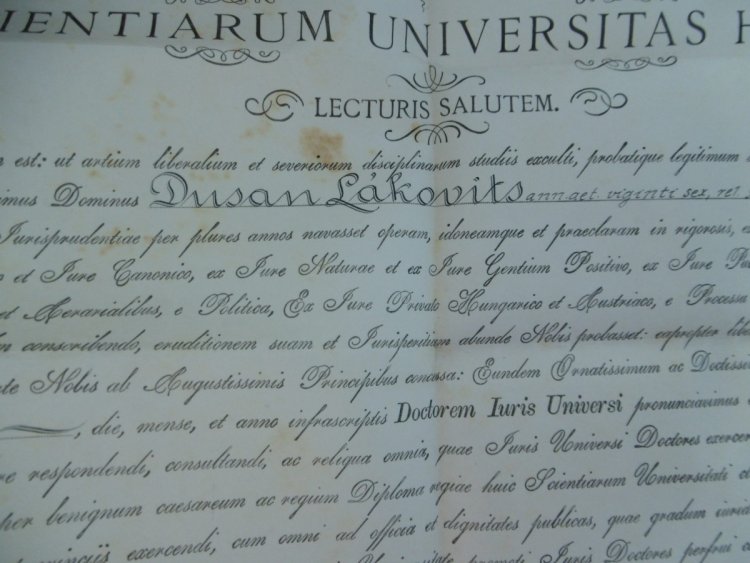 IENTIARUM UNIVERSITAS H
LECTURIS SALUTEM.
est: ut artium liberalium et severiorum disciplinarum studiis exculti, probatique legitimum
imus Dominus Dusan Lákovits ann. aet. viginti sex, rel.
Jurisprudentiae per plures annos navasset operam, idoneamque et praeclaram in rigorosis, e
o et Jure Canonico, ex Jure Naturae et ex Jure Gentium Positivo, ex Jure Pu
et Aerarialibus, e Politica, Ex Jure Privato Hungarico et Austriaco, e Processu
conscribendo, eruditionem suam et Jurisperitiam abunde Nobis probasset: eapropter libe
te Nobis ab Augustissimis Principibus concessa: Eundem Ornatissimum ac Doctisse
, die, mense, et anno infrascriptis Doctorem Iuris Universi pronunciavimus
re respondendi, consultandi, ac reliqua omnia, quae Juris Universi Doctores exercer
per benignum caesareum ac regium Diploma regiae huic Scientiarum Universitati co
exercendi, cum omni ad officia et dignitates publicas, quae gradum iurid
promoti Juris Doctores perfrui